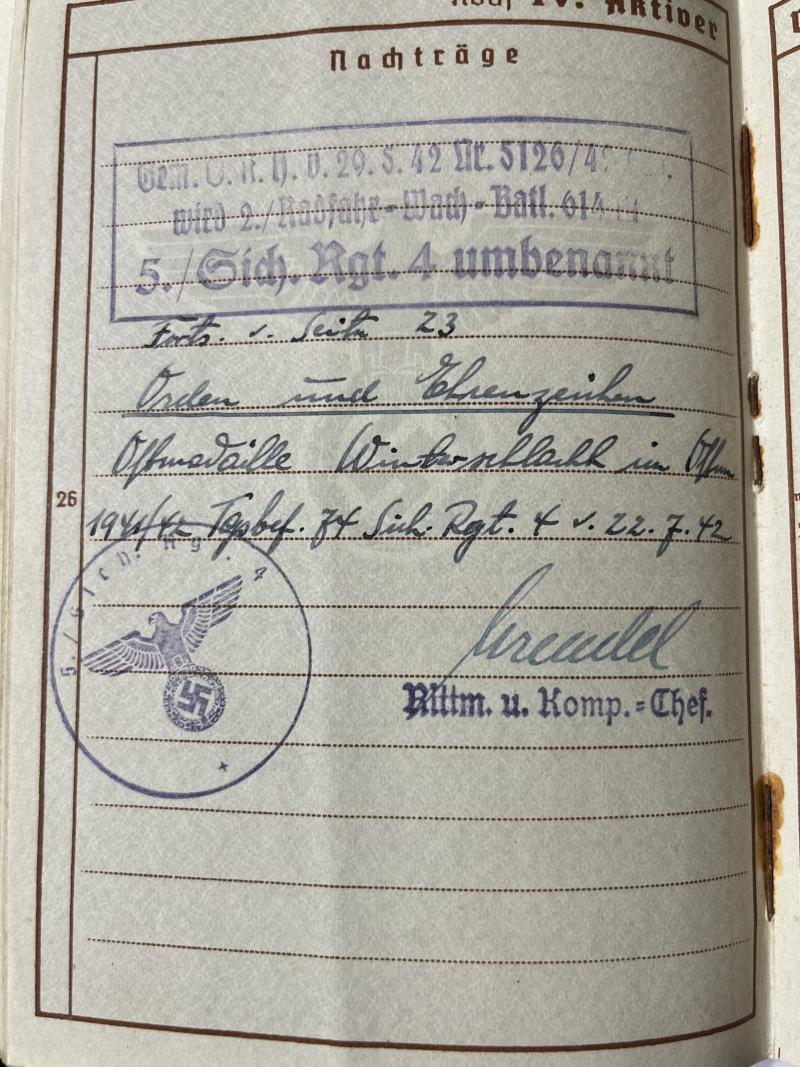 Noch IV. Aktiver
Nachträge
Gem. O. K. H. v. 29. 5. 42 Nr. 5126/42
wird 2./Radfahr-Wach-Batl. 614
5./Sich. Rgt. 4 umbenannt
Forts. v. Seite 23
Orden und Ehrenzeichen
Ostmedaille Winterschlacht im Osten
1941/42 Tgsbef. 74 Sich. Rgt. 4 v. 22. 7. 42
26
5./Sich. Rgt. 4
Rittm. u. Komp.=Chef.